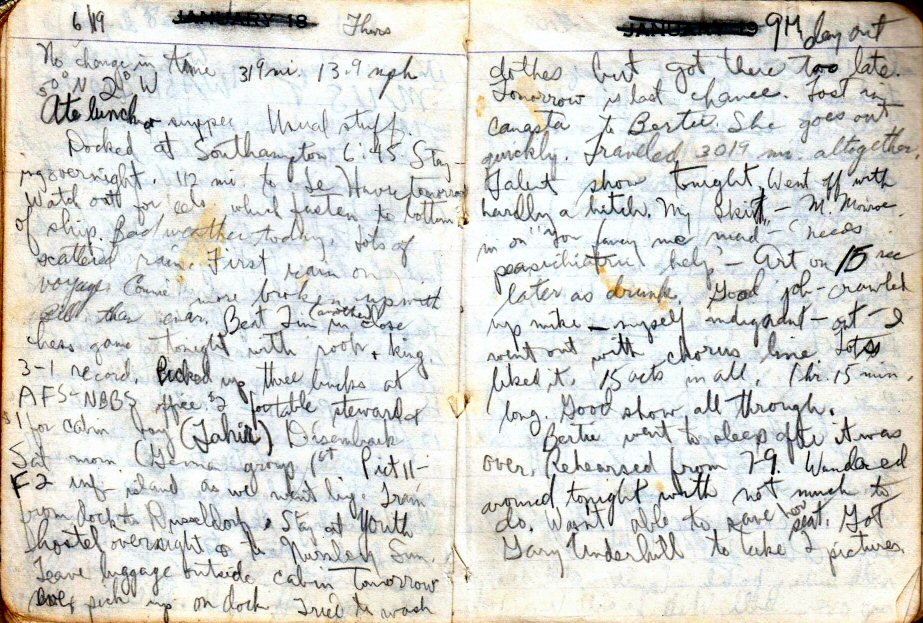 6/19 JANUARY 18 Thurs
No change in time 319 mi. 13.9 mph
50° N 2° W
Ate lunch & supper. Usual stuff.
Docked at Southampton 6:45 Stay-
ing overnight. 112 mi. to Le Havre tomorrow
Watch out for eels which fasten to bottom
of ship. Bad weather today. Lots of
scattered rain. First rain on
voyage. Connie more broken up with
than ever. Beat Jim in close
(another)
chess game tonight with rook + king.
3-1 record. Picked up three bucks at
AFS-NBBS office. $2 for table steward &
$1 for cabin boy (Tahir) Disembark
Sat morn. (German group 1st Pict 11-
F2 inf- island as we went by. Train
from dock to Dusseldorf. Stay at Youth
hostel overnight & to Sun.
Leave luggage outside cabin tomorrow
eve, pick up on dock Tried to wash
JANUARY 19 9th day out
clothes but got there too late.
Tomorrow is last chance. Lost in
canasta to Bertie. She goes out
quickly. Traveled 3019 mi. altogether.
Talent show tonight. Went off with
hardly a hitch. My Skit - M. Monroe
in on "You fancy me mad" - "needs
help" - Art on 15 sec
later as drunk. Good job - crawled
up mike - myself indignant - got - I
went out with chorus line. Lots
liked it. 15 acts in all, 1 hr. 15 min.
long. Good show all through.
Bertie went to sleep after it was
over. Rehearsed from 7-9. Wandered
around tonight with not much to
do. Wasn't able to save for seat. Got
Gary Underhill to take 2 pictures.